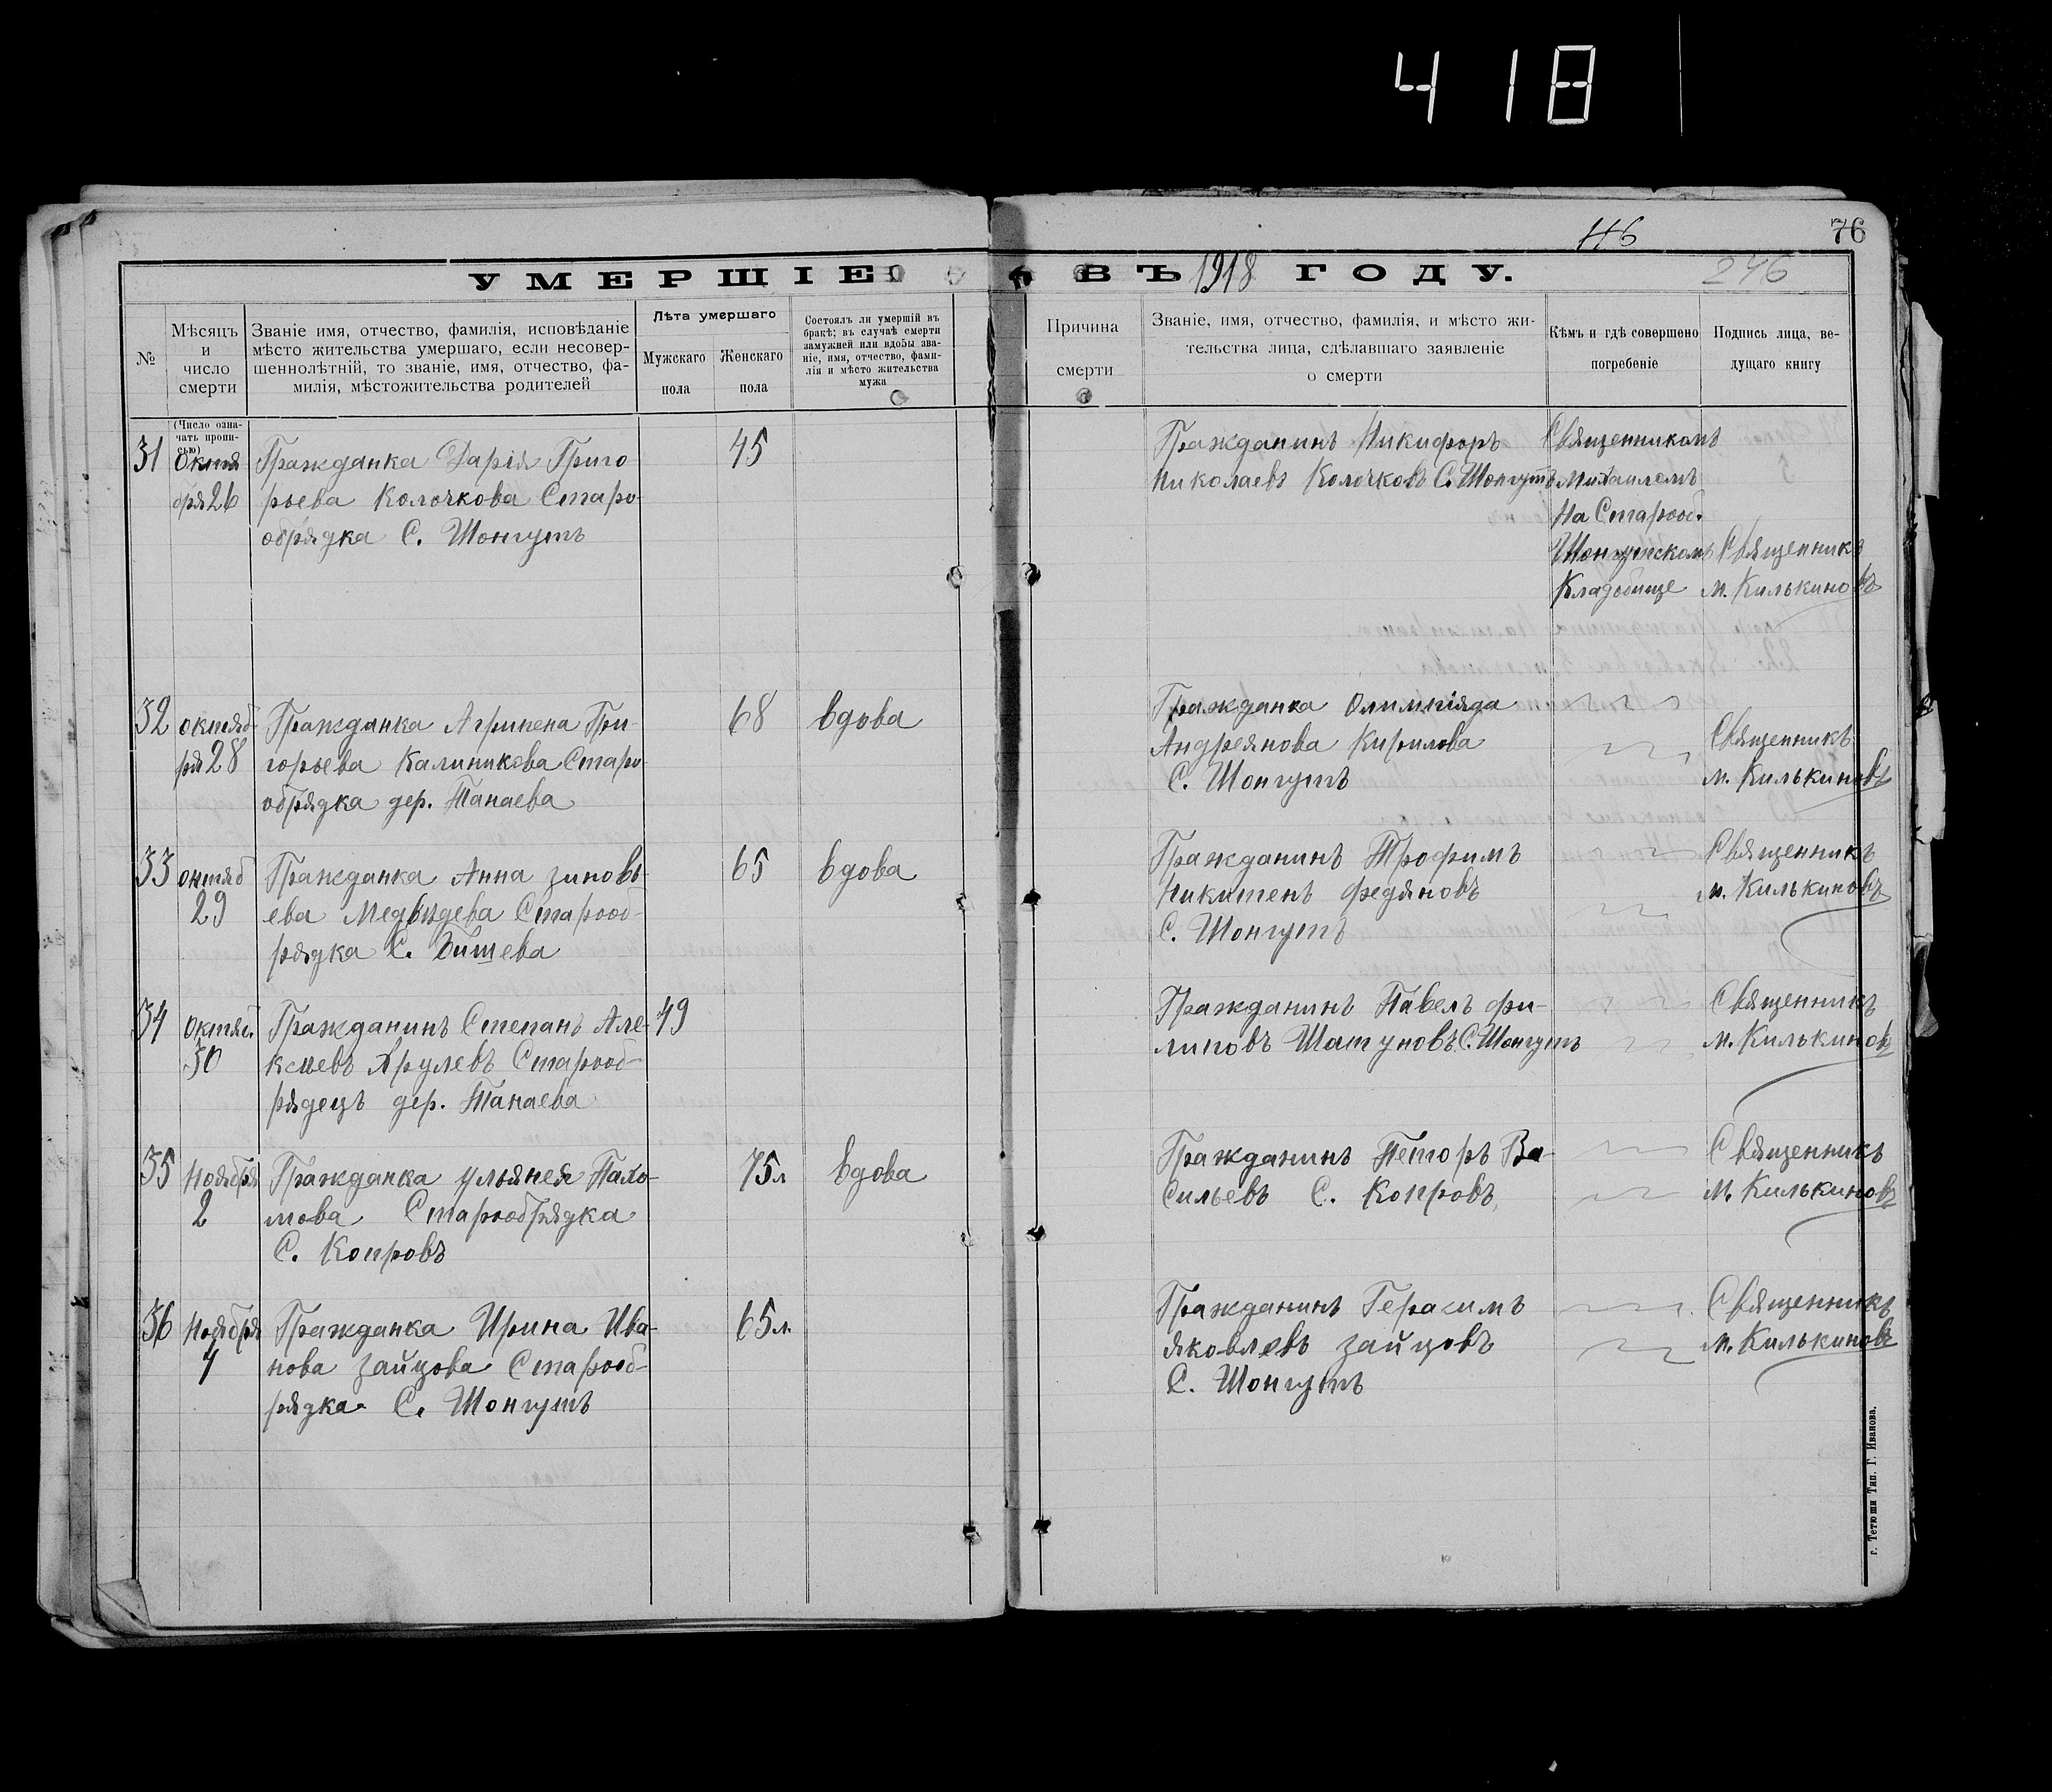 418
Н6
76
УМЕРШІЕ ВЪ 1918 ГОДУ.
246
№
Мѣсяцъ
и
число
смерти
Званіе имя, отчество, фамилія, исповѣданіе
мѣсто жительства умершаго, если несовер-
шеннолѣтній, то званіе, имя, отчество, фа-
милія, мѣстожительства родителей
Лѣта умершаго
Мужскаго
пола
Женскаго
пола
Состоялъ ли умершій въ
бракѣ; въ случаѣ смерти
замужней или вдовы зва-
ніе, имя, отчество, фами-
лія и мѣсто жительства
мужа
Причина
смерти
Званіе, имя, отчество, фамилія, и мѣсто жи-
тельства лица, сдѣлавшаго заявленіе
о смерти
Кѣмъ и гдѣ совершено
погребеніе
Подпись лица, ве-
дущаго книгу
(Число озна-
чать пропи-
сью)
31
Октя
бря 26
Гражданка Дарія Григо
рьева Колочкова Старо
обрядка С. Шонгутъ
45
Гражданинъ Никифоръ
Николаевъ Колочковъ С. Шонгутъ
Священникомъ
Михаиломъ
На Старооб.
Шонгутскомъ
Кладбище
Священникъ
М. Килькиновъ
32
октяб
ря 28
Гражданка Агрипена Гри-
горьева Калиникова Старо
обрядка дер. Танаева
68
вдова
Гражданка Олимпіяда
Андреянова Кирилова
С. Шонгутъ
Священникъ
М. Килькиновъ
33
октяб
29
Гражданка Анна зиновь-
ева Медвѣдева Старооб-
рядка С. Бишева
65
вдова
Гражданинъ Трофимъ
Никитенъ федяновъ
С. Шонгутъ
Священникъ
М. Килькиновъ
34
октяб.
30
Гражданинъ Степанъ Але-
ксѣевъ Хрулевъ Старооб-
рядецъ дер. Танаева
49
Гражданинъ Павелъ фи-
липовъ Шатуновъ С. Шонгутъ
Священникъ
М. Килькиновъ
35
Ноября
2
Гражданка ульянея Пахо-
мова Старообрядка
С. Копровъ
75 л
вдова
Гражданинъ Петоръ Ва-
сильевъ С. Копровъ
Священникъ
М. Килькиновъ
36
Ноября
4
Гражданка Ирина Ива-
нова зайцова Старооб-
рядка С. Шонгутъ
65 л.
Гражданинъ Герасимъ
яковлевъ зайцовъ
С. Шонгутъ
Священникъ
М. Килькиновъ
г. Тетюши Тип. Г. Иванова.